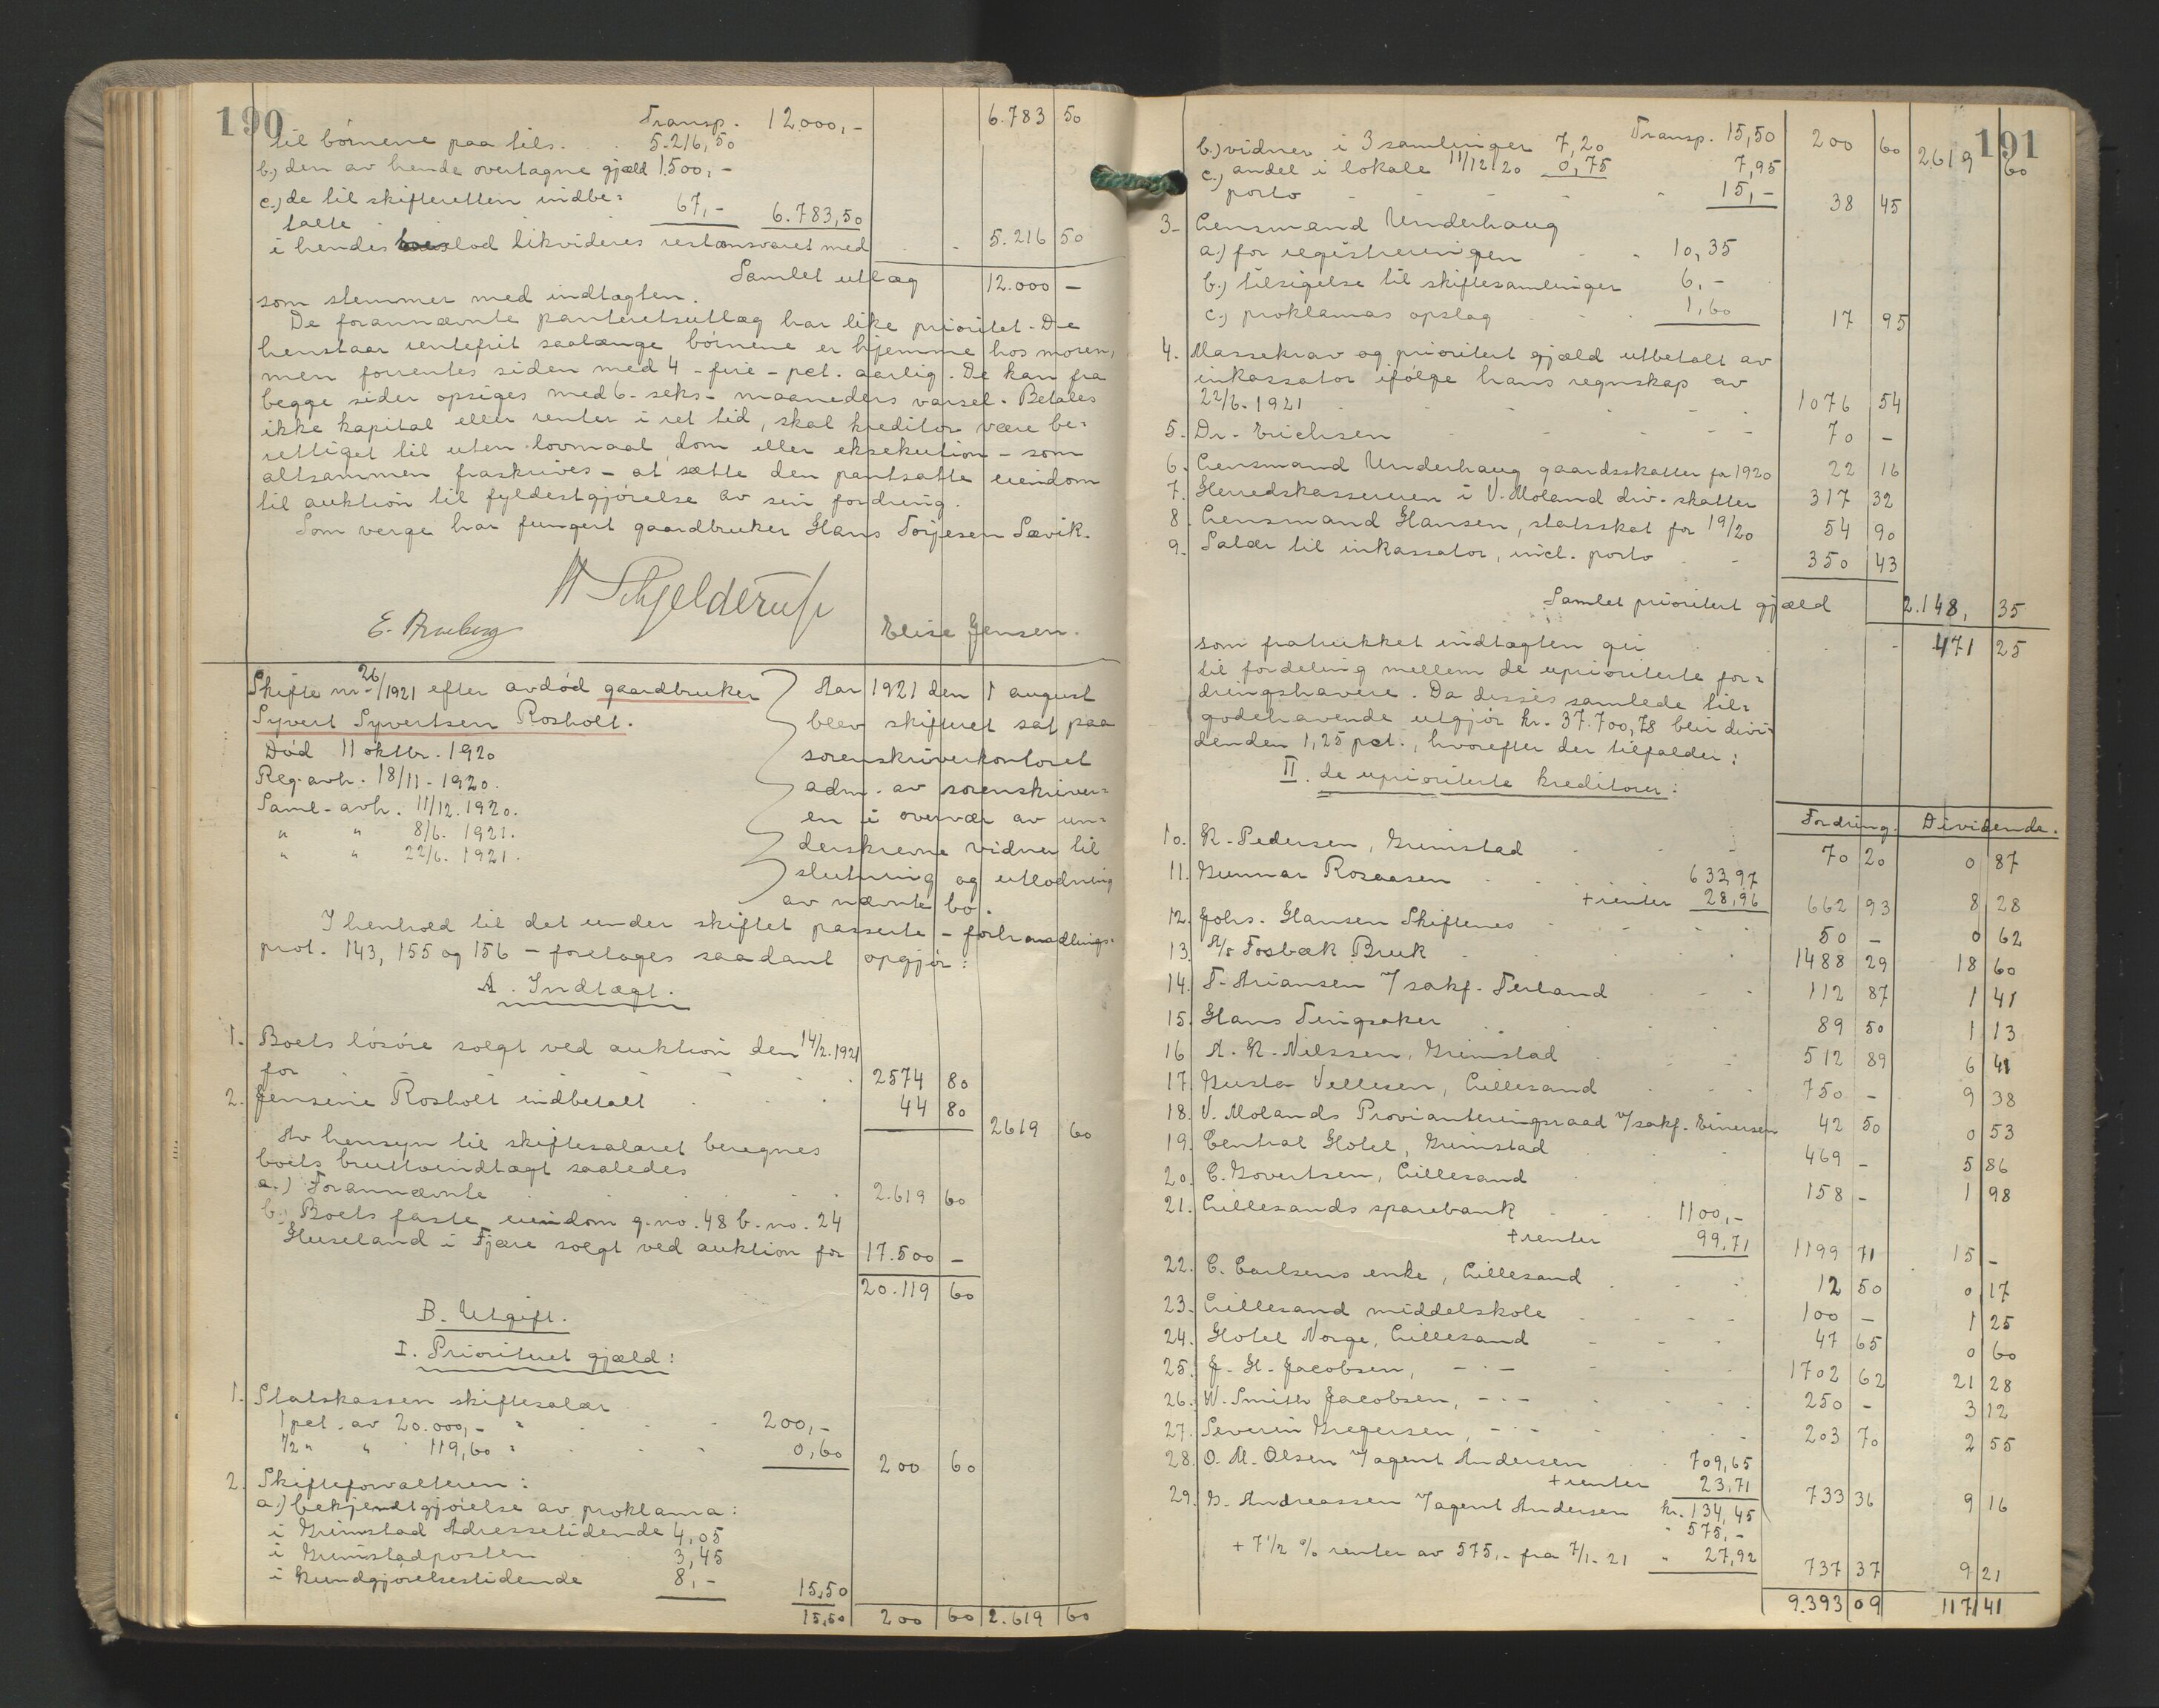 190
Transp. 12000,- 6.783 50
til børnene paa tils. . . 5.216,50
b.) den av hende overtagne gjæld 1500,-
c.) de til skifteretten indbe-
talte 67,- 6.783,50
i hendes lod likvideres restansvaret med . . 5.216 50
Samlet utlæg 12.000 -
som stemmer med indtægten.
De forannævnte panteretsutlæg har like prioritet. De
henstaar rentefrit saalænge børnene er hjemme hos moren,
men forrentes siden med 4 - fire - pct. aarlig. De kan fra
begge sider opsiges med 6 - seks - maaneders varsel. Betales
ikke kapital eller renter i ret tid, skal kreditor være be-
rettiget til uten lovmaal, dom eller eksekution - som
altsammen fraskrives - at sætte den pantsatte eiendom
til auktion til fyldestgjørelse av sin fordring.
Som verge har fungert gaardbruker Hans Torjesen Sævik.
H Schjelderup
E. Broberg Elise Jensen.
Skifte nr. 26/1921 efter avdød gaardbruker
Syvert Syvertsen Rosholt.
Død 11 oktbr. 1920
Reg. avh. 18/11. 1920.
Saml. avh. 11/12. 1920.
" " 8/6. 1921.
" " 22/6. 1921.
Aar 1921 den 1 august
blev skifteret sat paa
sorenskriverkontoret
adm. av sorenskriver-
en i overvær av un-
derskrevne vidner til
slutning og utlodning
av nævnte bo.
I henhold til det under skiftet passerte - forhandlings-
prot. 143, 155 og 156 - foretages saadant opgjør:
A. Indtægt.
1. Boets løsøre solgt ved auktion den 14/2. 1921
for . . . . . . 2574 80
2. Jensine Rosholt indbetalt . . . 44 80
2619 60
Av hensyn til skiftesalæret beregnes
boets bruttoindtægt saaledes
a.) Forannævnte . . . . . 2.619 60
b.) Boets faste eiendom g.no. 48 b.no. 24
Huseland i Fjære solgt ved auktion for 17.500 -
20.119 60
B. Utgift.
I. Prioritert gjæld:
1. Statskassen skiftesalær
1 pct. av 20.000,- " . . . 200,-
1/2 " " 119,60 " . . . 0,60 200 60
2. Skifteforvalteren:
a.) bekjendtgjørelse av proklama:
i Grimstad Adressetidende 4,05
i Grimstadposten 3,45
i Kundgjørelsestidende 8,- 15,50
15,50 200 60 2.619 60
191
Transp. 15,50 200 60 2619 60
b.) vidner i 3 samlinger 7,20
c.) andel i lokale 11/12 20 0,75 7,95
porto . . . 15,- 38 45
3. Lensmand Underhaug
a.) for registreringen . . 10,35
b.) tilsigelse til skiftesamlinger 6,-
c.) proklamas opslag . . . 1,60 17 95
4. Massekrav og prioritert gjæld utbetalt av
inkassator ifølge hans regnskap av
22/6. 1921 . . . . . . 1076 54
5. Dr. Erichsen . . . . . 70 -
6. Lensmand Underhaug gaardsskatter for 1920 22 16
7. Herredskassereren i V. Moland div. skatter 317 32
8. Lensmand Hansen, statsskat for 19/20 54 90
9. Salær til inkassator, incl. porto . . 350 43
Samlet prioritert gjæld 2.148, 35
som fratrukket indtægten gir . . . 471 25
til fordeling mellem de uprioriterte for-
dringshavere. Da disses samlede til-
godehavende utgjør kr. 37.700,78 blir divi-
denden 1,25 pct., hvorefter der tilfalder:
II. de uprioriterte kreditorer:
Fordring. Dividende.
10. K. Pedersen, Grimstad . . . 70 20 0 87
11. Gunnar Rosaasen . . . 633,97
+ renter 28,96 662 93 8 28
12. Johs. Hansen Skiftenes . . . . 50 - 0 62
13. A/S Fosbæk Bruk . . . . 1488 29 18 60
14. T. Ariansen v/ sakf. Terland . . . 112 87 1 41
15. Hans Tingsaker . . . . 89 50 1 13
16 A. K. Nilssen, Grimstad . . . 512 89 6 41
17. Gusta Vellesen, Lillesand . . . 750 - 9 38
18. V. Molands Provianteringsraad v/ sakf. Einersen 42 50 0 53
19. Central Hotel, Grimstad . . . 469 - 5 86
20. C. Govertsen, Lillesand . . . 158 - 1 98
21. Lillesands sparebank . . . 1100,-
+ renter 99,71 1199 71 15 -
22. C. Carlsens enke, Lillesand . . . 12 50 0 17
23. Lillesand middelskole . . . . 100 - 1 25
24. Hotel Norge, Lillesand . . . 47 65 0 60
25. J. H. Jacobsen, - " - . . . 1702 62 21 28
26. W. Smith Jacobsen, - " - . . . 250 - 3 12
27. Severin Gregersen, - " - . . . 203 70 2 55
28. O. M. Olsen v/ agent Andersen . 709,65
+ renter 23,71 733 36 9 16
29. G. Andreassen v/ agent Andersen kr. 134,45
" 575,-
+ 7 1/2 % renter av 575,- fra 7/1. 21 " 27,92 737 37 9 21
9.393 09 117 41